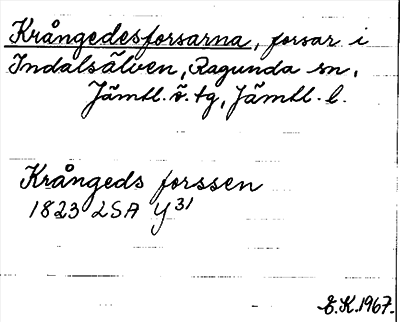 Krångedesforsarna, forsar i
Indalsälven, Ragunda sn,
Jämtl. ö. tg, Jämtl. l.
Krångeds forssen
1823 LSA Y31
E.K. 1967.